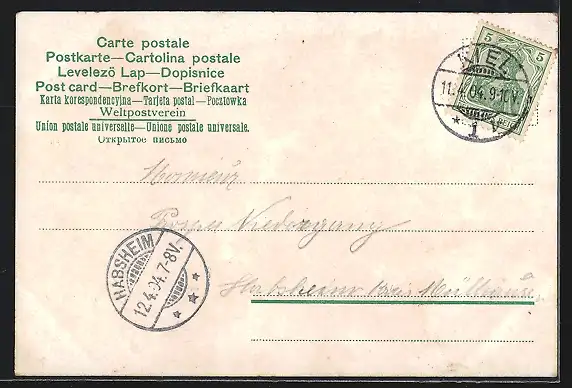 Carte postale
Postkarte—Cartolina postale
Levelező Lap—Dopisnice
Post card—Brefkort—Briefkaart
Karta korespondencyjna—Tarjeta postal—Pocztowka
Weltpostverein
Union postale universelle—Unione postale universale.
Открытое письмо
5 5
KIEL
11.4.04.9-10V.
* 1 v
HABSHEIM
12.4.04.7-8V.
* * *
Habsheim Kreis Mülhausen